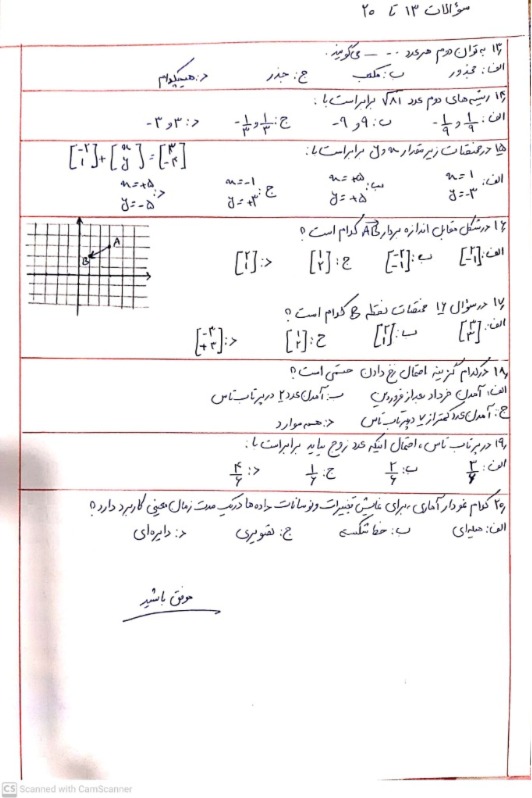 سؤالات ۱۳ تا ۲۰
۱۳) به توان دوم هر عدد ..... می‌گویند.
الف: مجذور ب: مکعب ج: جذر د: هیچکدام
۱۴) ریشه‌های دوم عدد √۸۱ برابر است با:
الف: ۱/۹ و -۱/۹ ب: ۹ و -۹ ج: ۱/۳ و -۱/۳ د: ۳ و -۳
۱۵) در مختصات زیر مقدار x و y برابر است با: [-۲ ۱] + [x y] = [۳ -۴]
الف: x=۱ y=-۳ ب: x=+۵ y=+۵ ج: x=-۱ y=+۳ د: x=+۵ y=-۵
۱۶) در شکل مقابل اندازه بردار AB کدام است؟
A
B
الف: [۲ -۱] ب: [-۲ -۱] ج: [۱ ۲] د: [۲ ۱]
۱۷) در سؤال ۱۶ مختصات نقطه B کدام است؟
الف: [۳ ۳] ب: [۲ ۱] ج: [۱ ۲] د: [-۳ +۳]
۱۸) در کدام گزینه احتمال رخ دادن حتمی است؟
الف: آمدن خرداد بعد از فروردین ب: آمدن عدد ۲ در پرتاب تاس
ج: آمدن عدد کمتر از ۷ در پرتاب تاس د: همه موارد
۱۹) در پرتاب تاس، احتمال اینکه عدد زوج بیاید برابر است با:
الف: ۳/۶ ب: ۲/۶ ج: ۱/۶ د: ۴/۶
۲۰) کدام نمودار آماری، برای نمایش تغییرات و نوسانات داده‌ها در یک مدت زمان معینی کاربرد دارد؟
الف: میله‌ای ب: خط شکسته ج: تصویری د: دایره‌ای
موفق باشید
CS Scanned with CamScanner